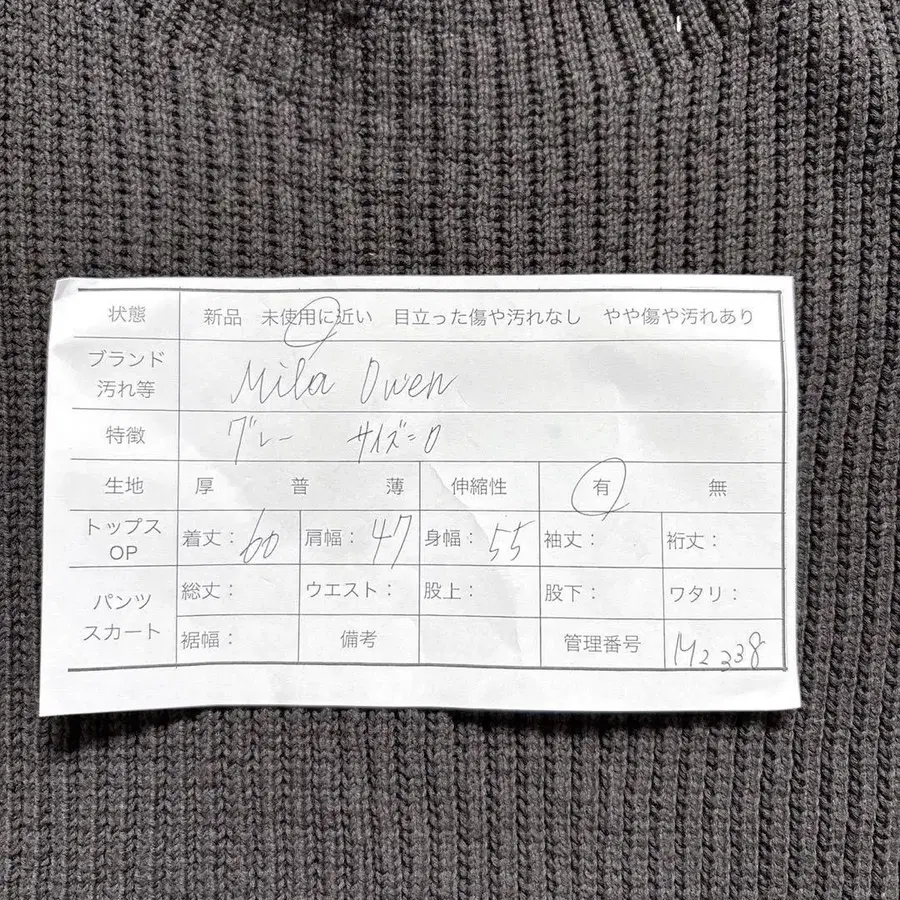 状態 新品 未使用に近い 目立った傷や汚れなし やや傷や汚れあり
ブランド
汚れ等 Mila Owen
特徴 グレー サイズ=0
生地 厚 普 薄 伸縮性 有 無
トップス
OP 着丈: 60 肩幅: 47 身幅: 55 袖丈: 裄丈:
パンツ
スカート 総丈: ウエスト: 股上: 股下: ワタリ:
裾幅: 備考 管理番号 M2338